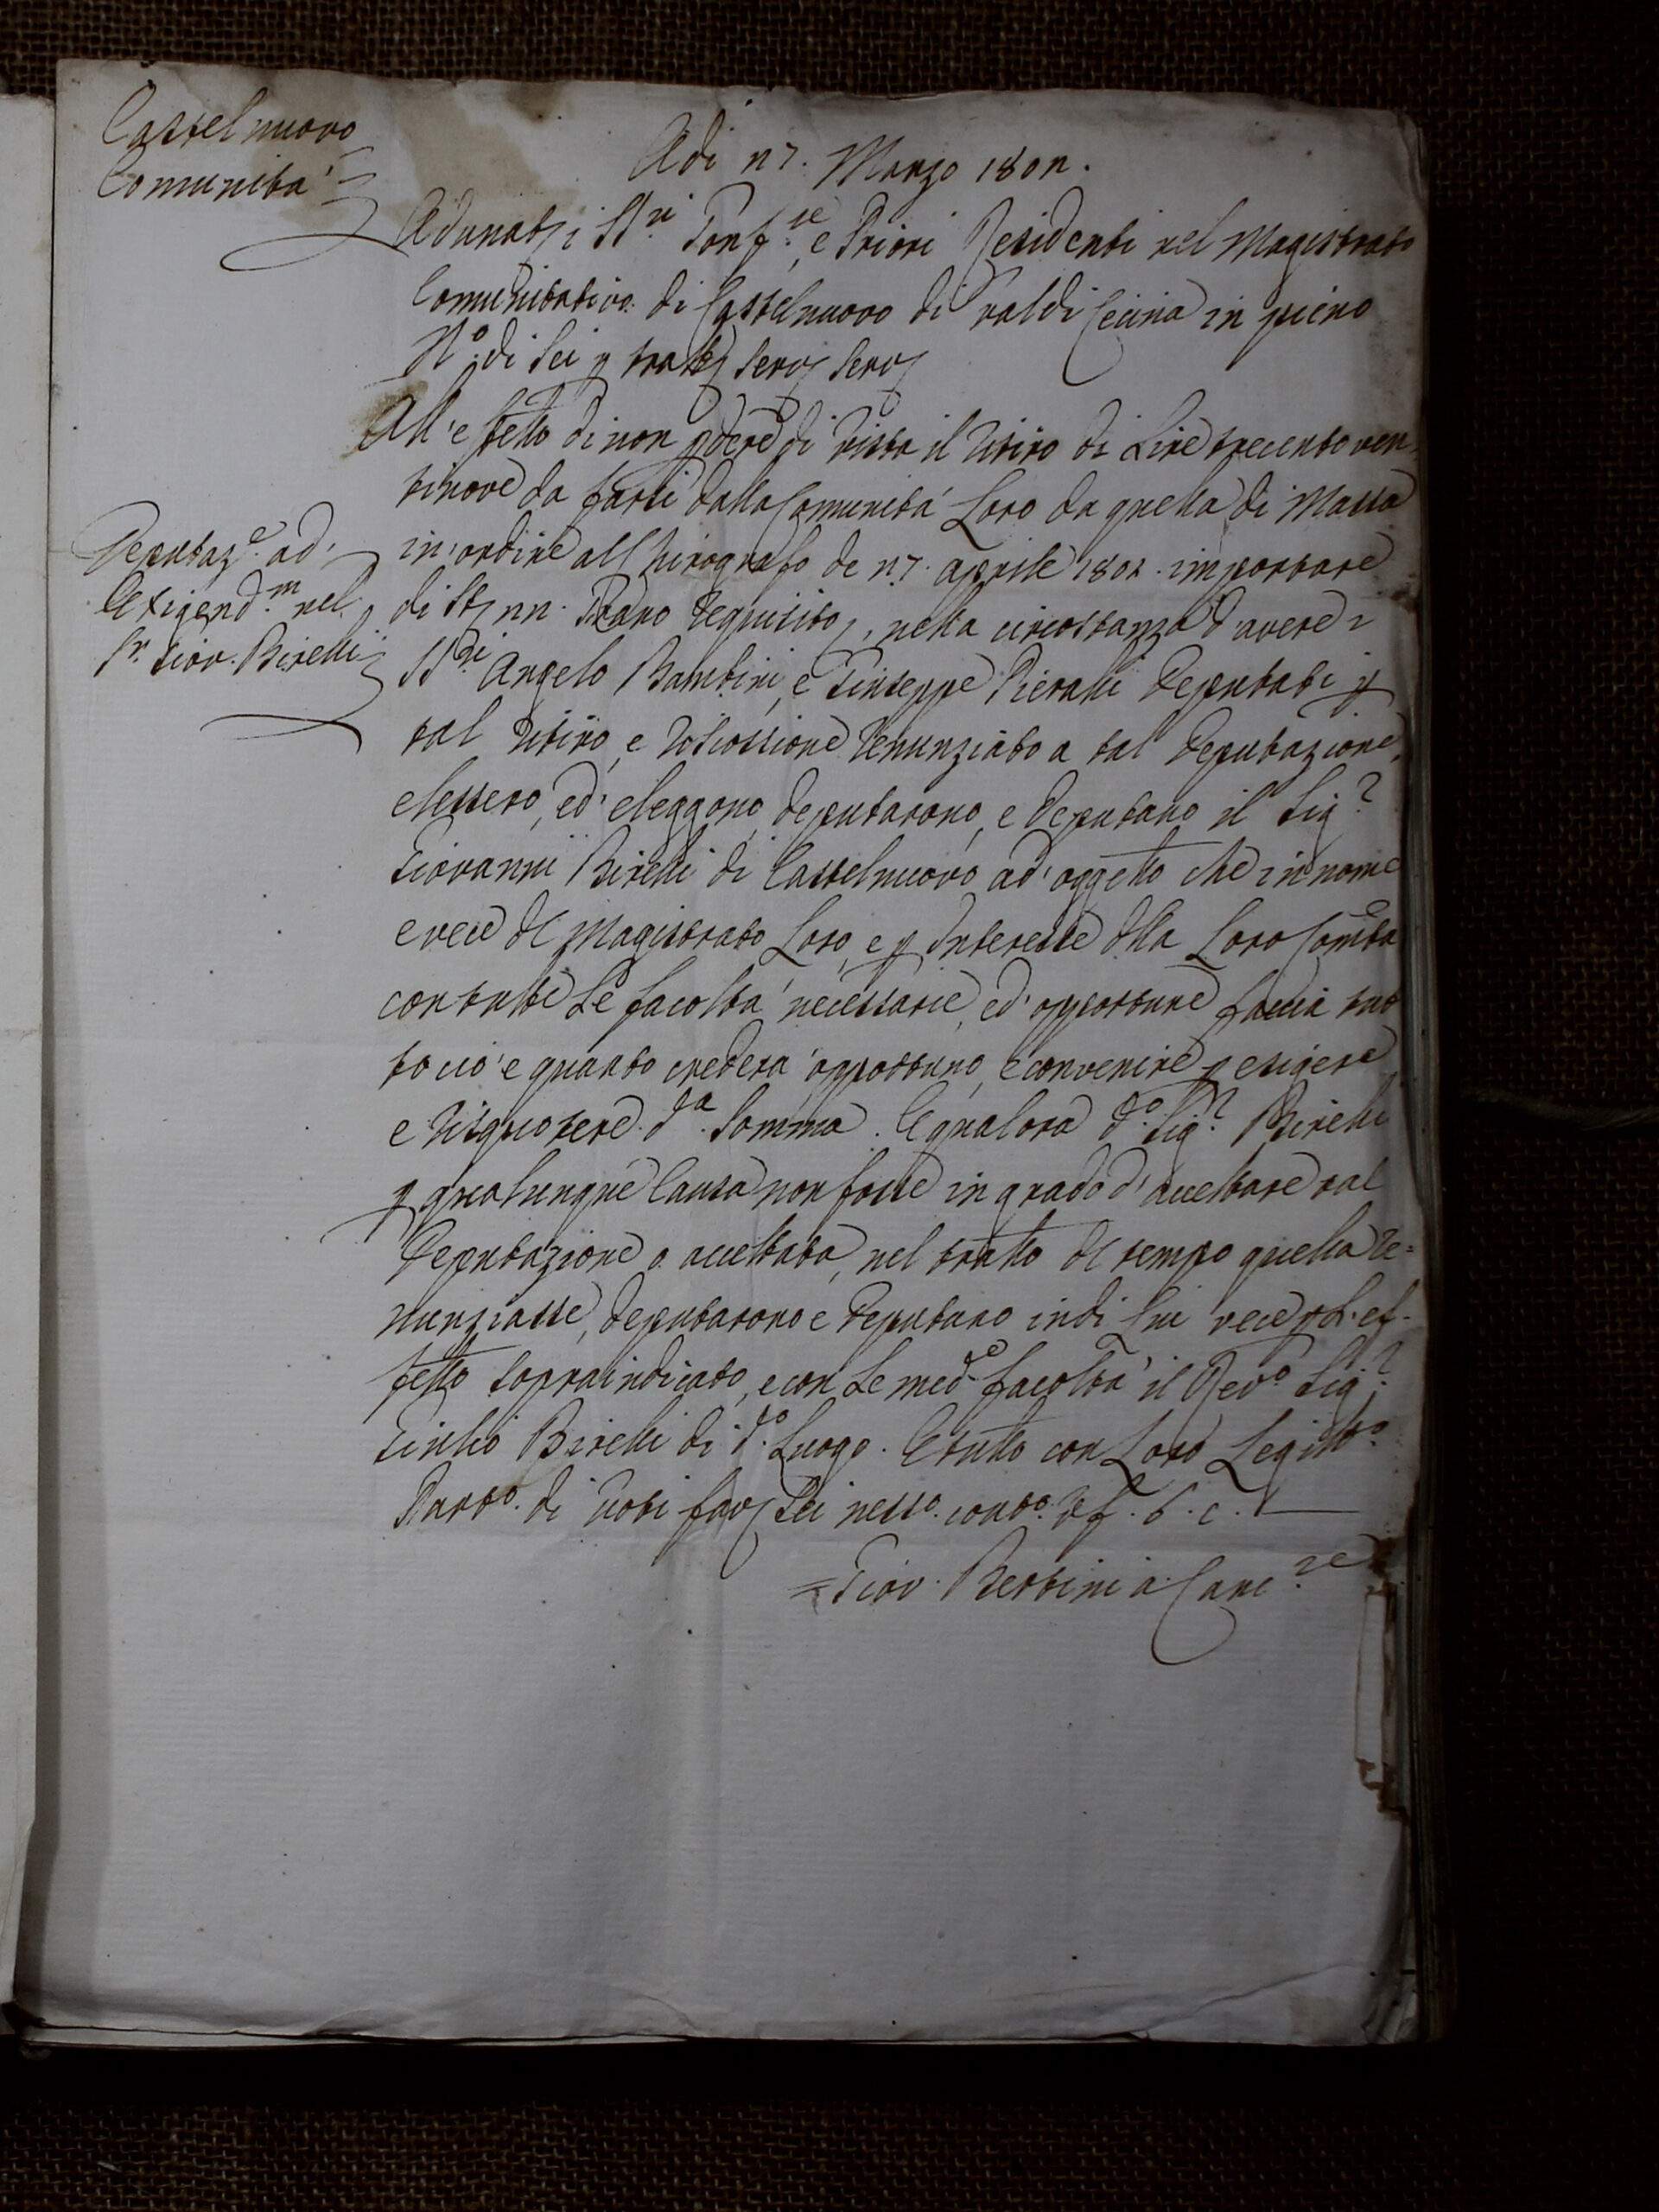 Castelnuovo
Comunità
Adi 27. Marzo 1802.
Adunati i SS.ri Gonf.re, e Priori Residenti nel Magistrato
Comunitativo di Castelnuovo di Val di Cecina in pieno
N.o di Sei p trattare serv servatis
All'effetto di non pdere di vista il ritiro di Lire trecento ven-
tinove da farsi dalla Comunità Loro da quella di Massa
Deputaz.e ad'
Exigend.m nel
S.r Giov. Birelli
in'ordine all Chirografo de 27. aprile 1802. importare
di St. nn. Grano requisito, nella circostanza d'avere i
SS.ri Angelo Bambini, e Giuseppe Pieralli Deputati p
tal ritiro, e riscossione renunziato a tal Deputazione,
elessero, ed'eleggono, deputarono, e deputano il Sig.r
Giovanni Birelli di Castelnuovo ad'oggetto che in nome
e vece del Magistrato Loro, e p interesse della Loro Comtà
con tutte Le facoltà necessarie, ed'opportune faccia tut
to ciò e quanto crederà opportuno, e convenire p esigere
e risquotere d.a Somma. E qualora d.o Sig.r Birelli
p qualunque Causa non fosse in grado d'accettare tal
Deputazione o accettata, nel tratto del tempo quella re=
nunziasse, deputarono e deputano in di Lui vece p L'ef-
fetto sopraindicato, e con Le med.e facoltà il Rev.o Sig.r
Giulio Birelli di d.o Luogo. E tutto con Loro Legitt.o
Part.o di voti fav. Sei ness.o cont.o
=Giov. Bertini a. Canc.re